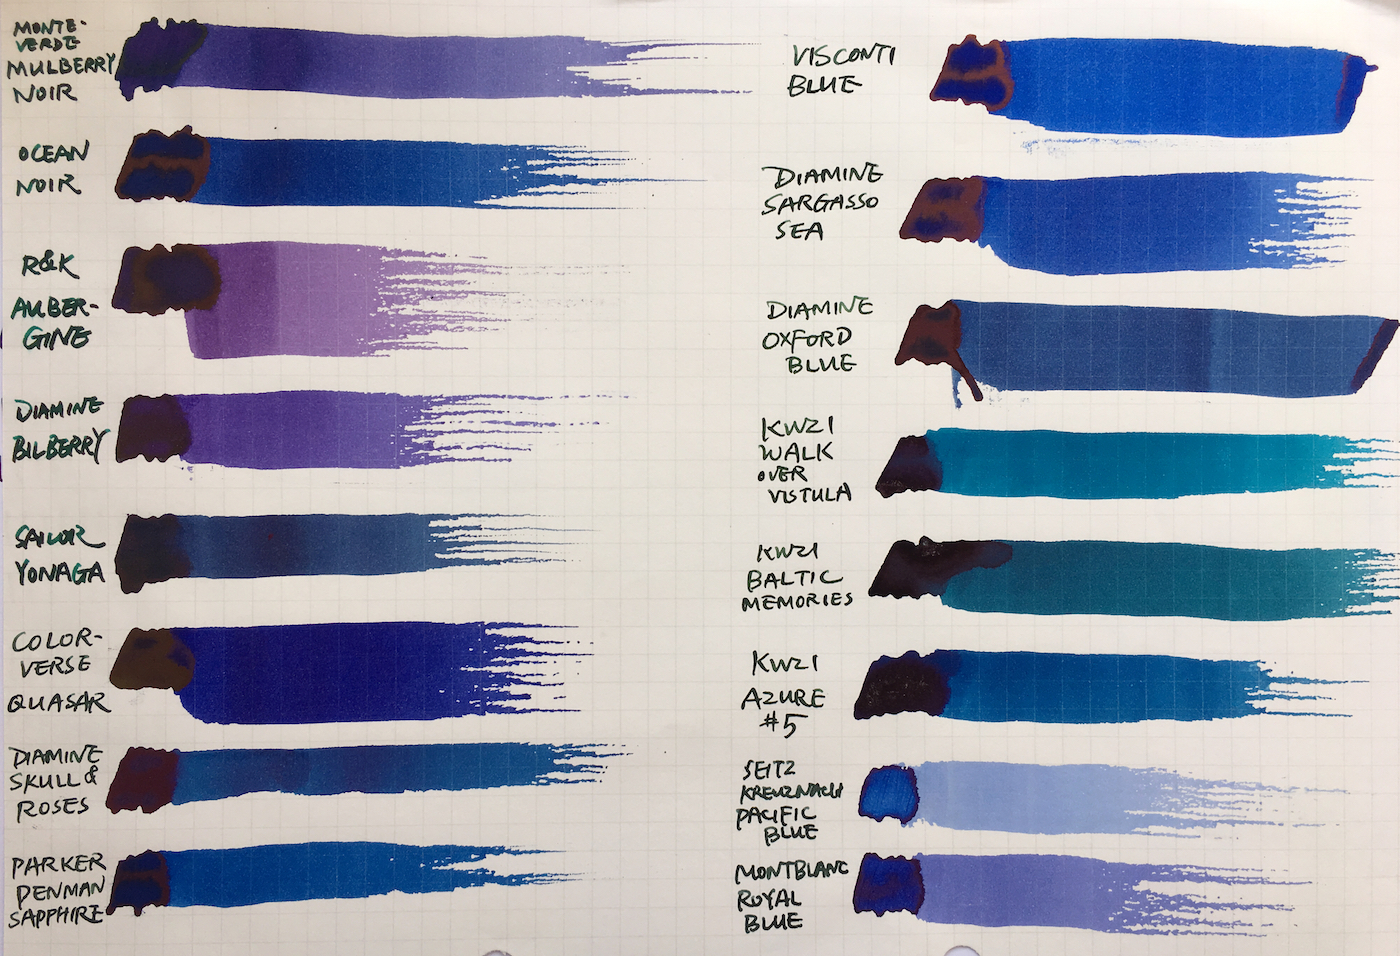 MONTE-
VERDE
MULBERRY
NOIR
OCEAN
NOIR
R&K
AUBER-
GINE
DIAMINE
BILBERRY
SAILOR
YONAGA
COLOR-
VERSE
QUASAR
DIAMINE
SKULL &
ROSES
PARKER
PENMAN
SAPPHIRE
VISCONTI
BLUE
DIAMINE
SARGASSO
SEA
DIAMINE
OXFORD
BLUE
KWZI
WALK
OVER
VISTULA
KWZI
BALTIC
MEMORIES
KWZI
AZURE
#5
SEITZ
KREUZNACH
PACIFIC
BLUE
MONTBLANC
ROYAL
BLUE